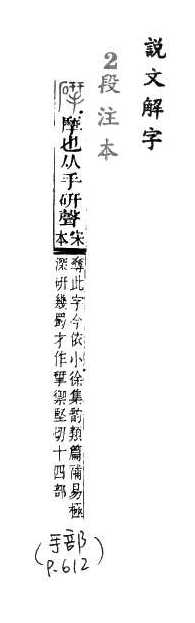 說文解字
2段注本
摩也从手硏聲
宋本
奪此字今依小徐集韵類篇補易極
深硏幾蜀才作揅禦堅切十四部
(手部
P.612)